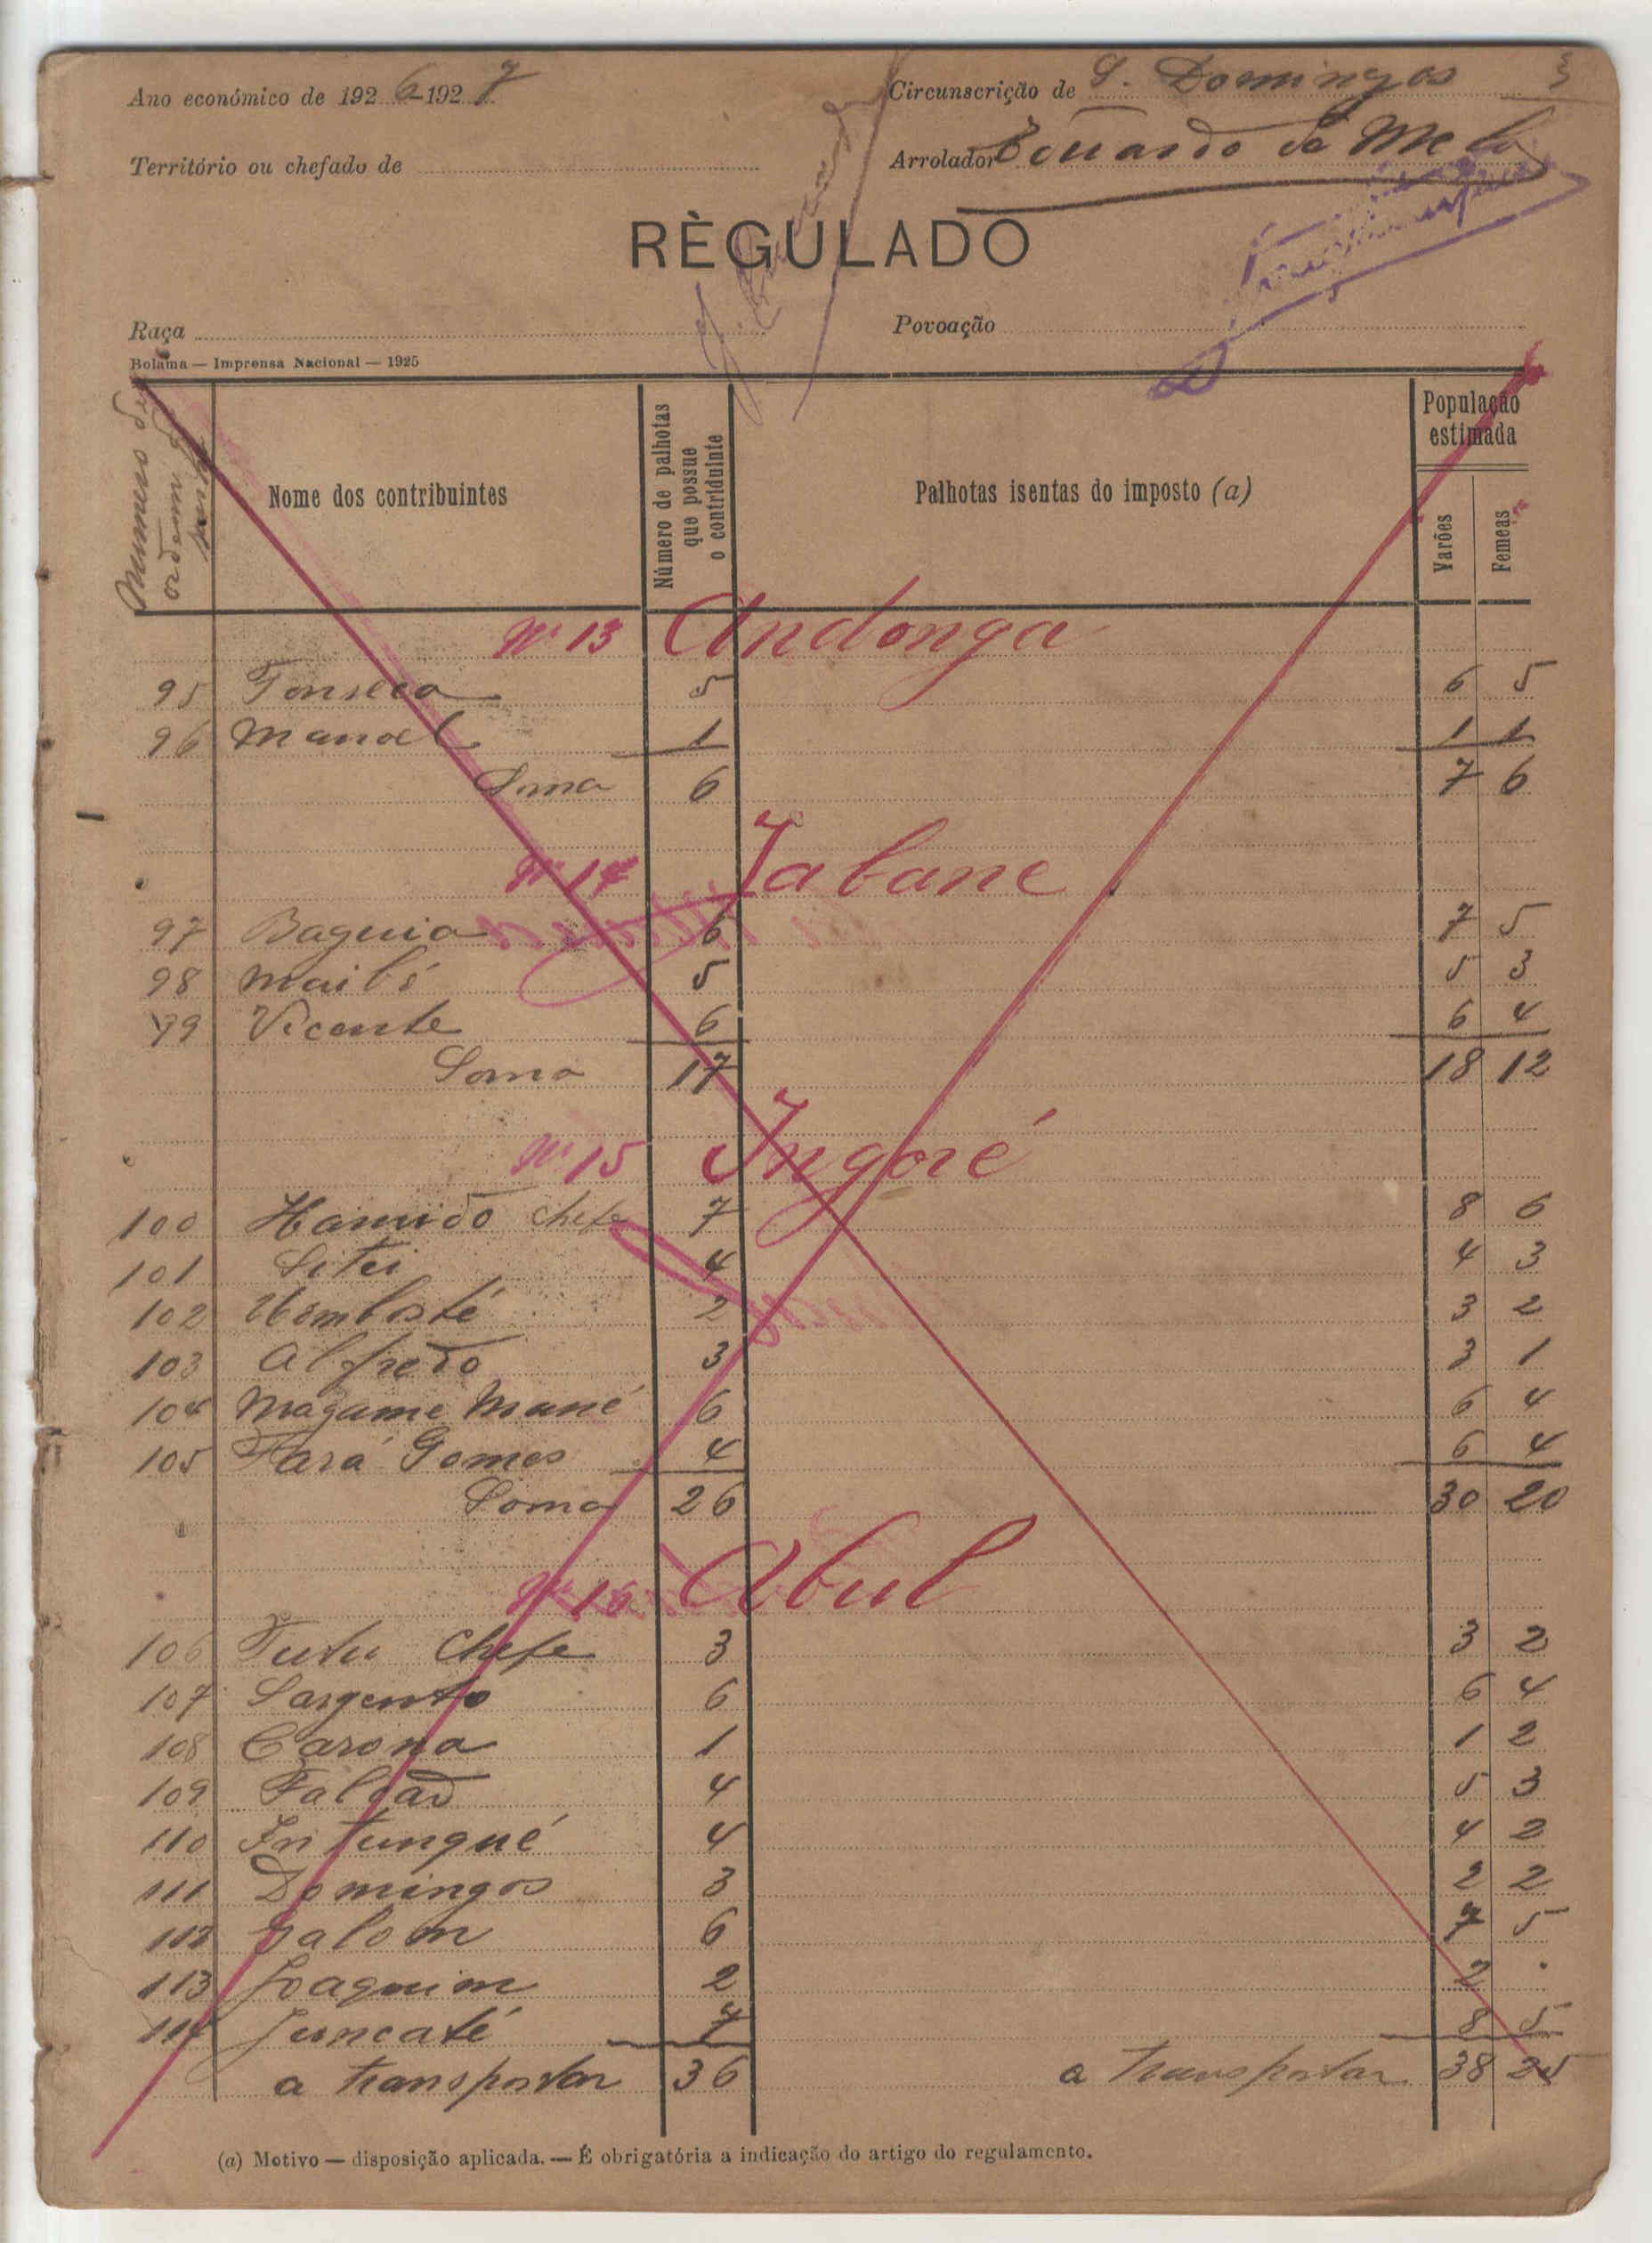 Ano económico de 1926-1927
Circunscrição de S. Domingos 3
Território ou chefado de
Arrolador Eduardo de Melo
RÈGULADO
Raça
Povoação
Bolama — Imprensa Nacional — 1925
Numero de ordem da
Nome dos contribuintes
Número de palhotas que possue o contriduinte
Palhotas isentas do imposto (a)
População estimada
Varões
Femeas
Nº 13 Andonga
95 Fonseca 5 6 5
96 Manoel 1 1 1
Soma 6 7 6
Nº 14 Jabane
97 Baguia 6 7 5
98 Mailé 5 5 3
99 Vicente 6 6 4
Soma 17 18 12
Nº 15 Ingoré
100 Hamido chefe 7 8 6
101 Sitei 4 4 3
102 2 3 2
103 Alfredo 3 3 1
104 Magame Mané 6 6 4
105 Fará Gomes 4 6 4
Soma 26 30 20
Nº 16 Abul
106 Tutu Chefe 3 3 2
107 Sargento 6 6 4
108 Carona 1 1 2
109 Falcão 4 5 3
110 Intungué 4 4 2
111 Domingos 3 2 2
112 Jalom 6 7 5
113 Joaquim 2 2 .
114 Juncaté 7 8 5
a transportar 36 a transportar 38 25
(a) Motivo — disposição aplicada. — É obrigatória a indicação do artigo do regulamento.